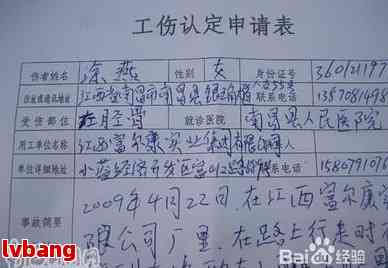 工伤认定申请表
伤者姓名 涂燕 性别 女 身份证号 360121197
住址或通讯地址 江西省南昌市南昌县 联系电话 1357081498
受伤部位 右胫骨 就诊医院 南昌县人民医院
用工单位名称 江西富尔康实业集团有限公司
单位详细地址 小蓝经济开发区富山 路 联系电话 158079101
事故简要 2009年4月22日,在江西富尔康实
限公司厂里,在路上行走时
lvbang
Baidu经验